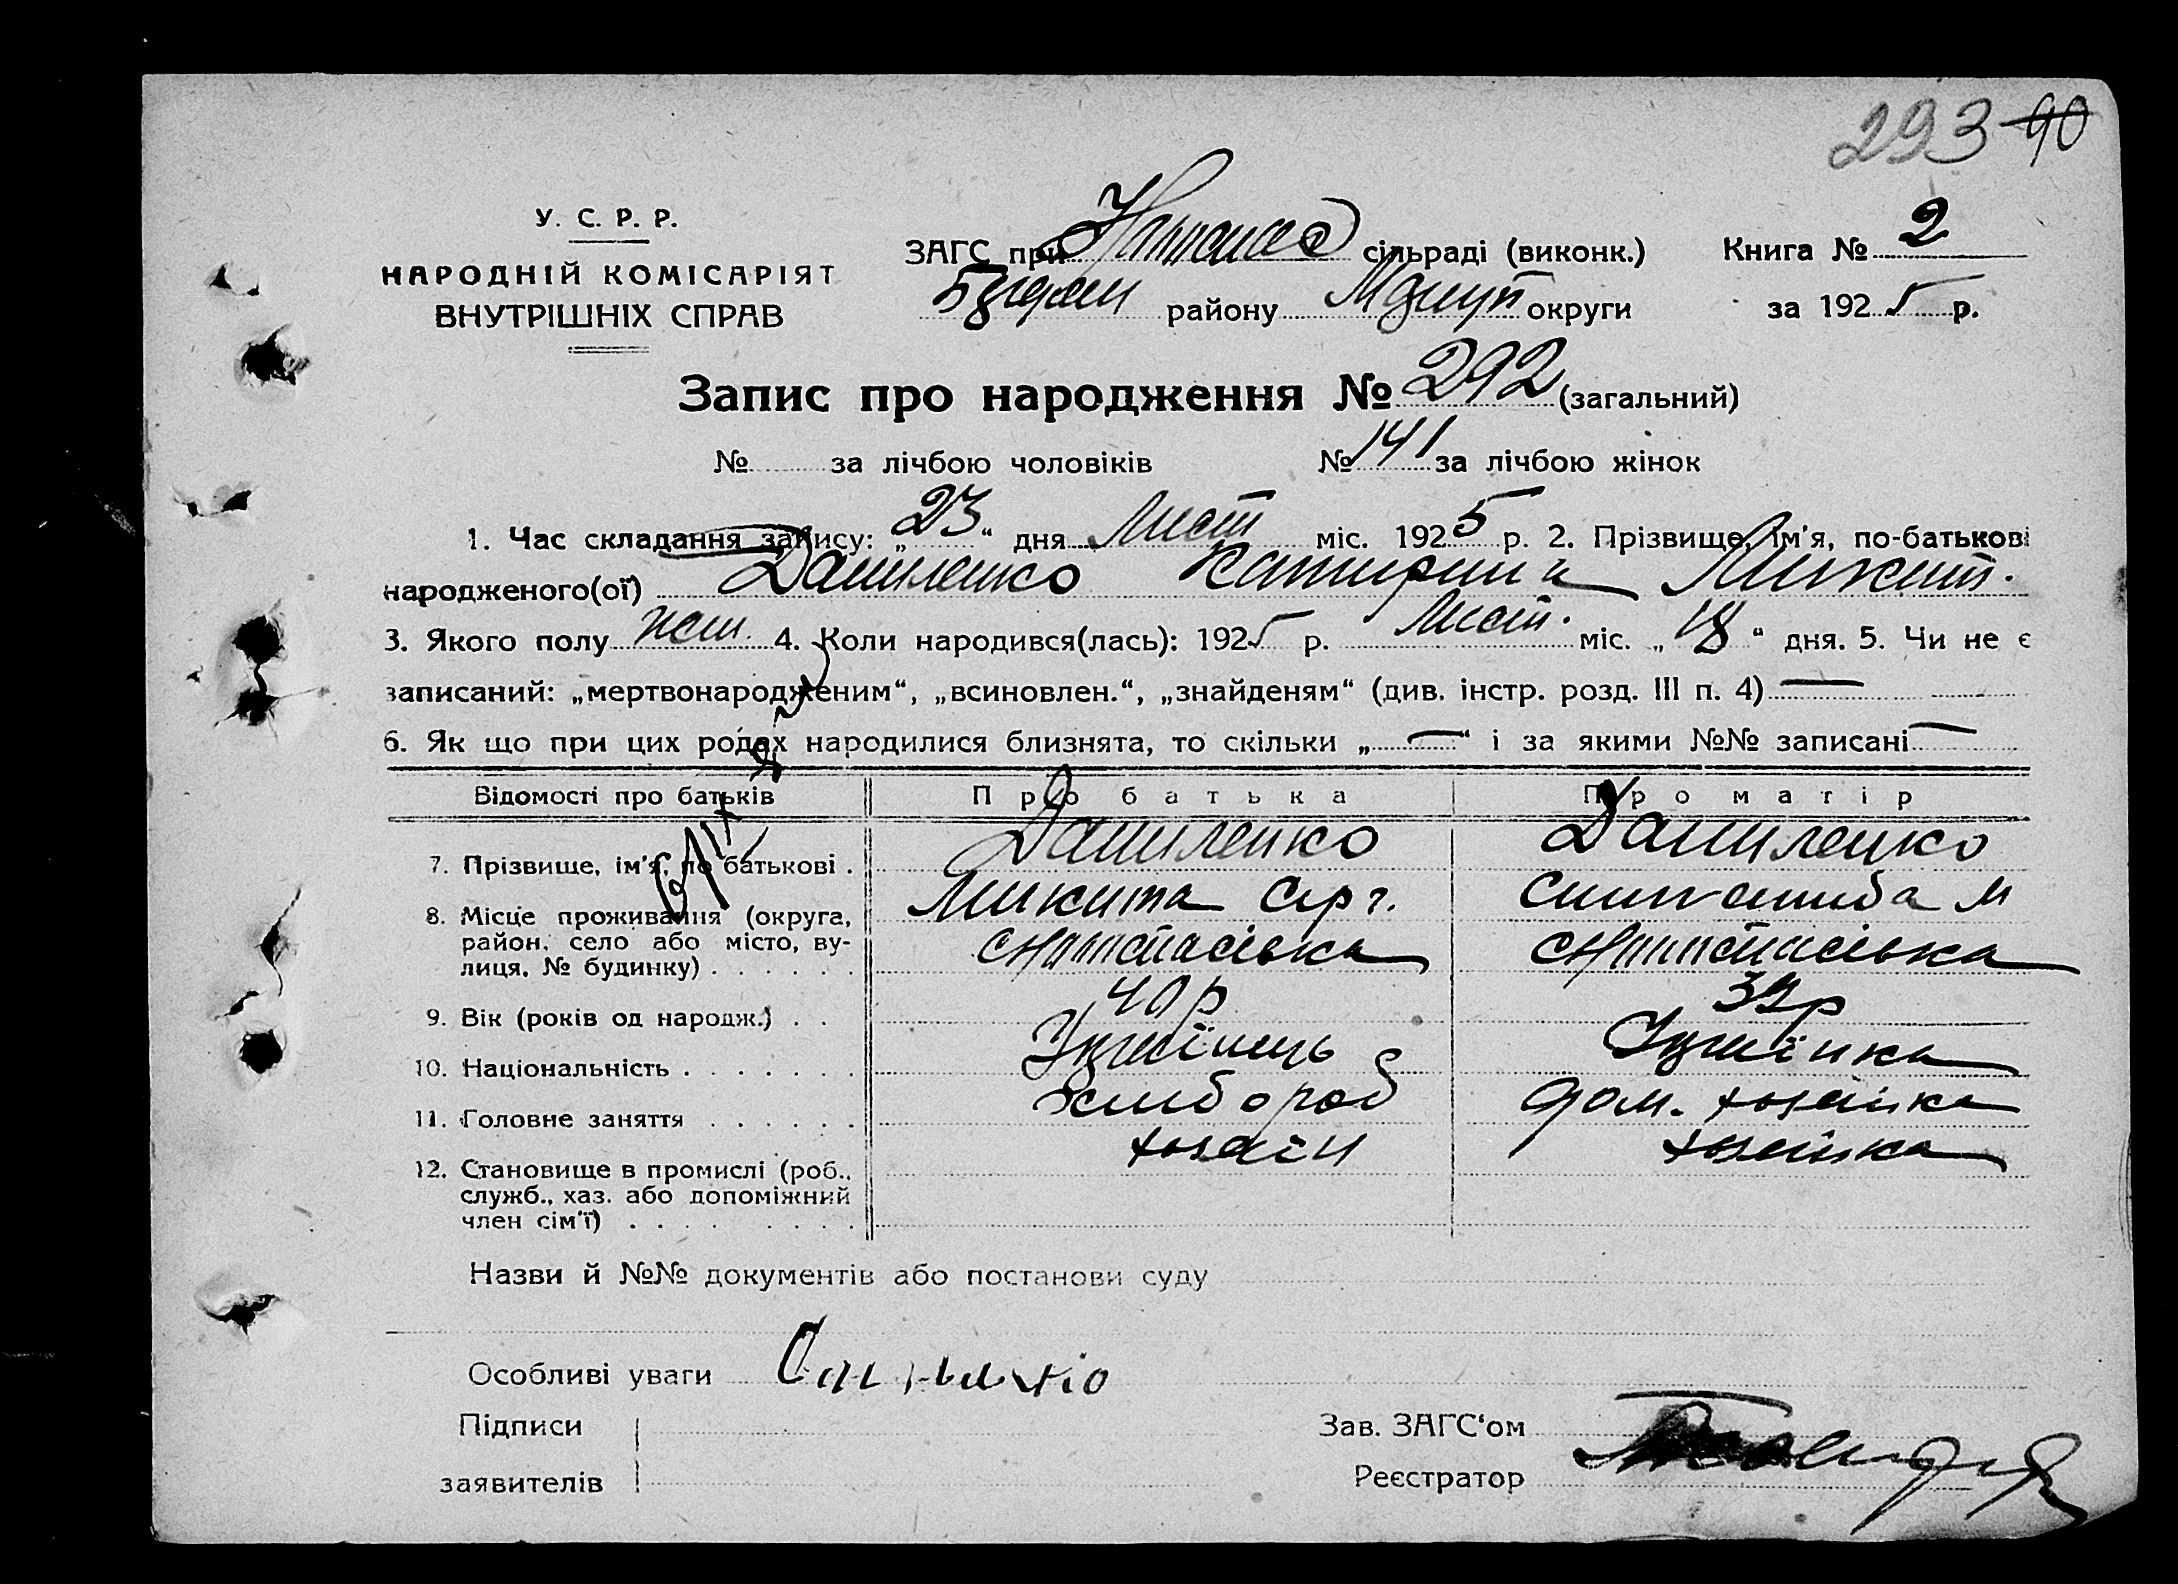 293 90
У. С. Р. Р.
НАРОДНІЙ КОМІСАРІЯТ
ВНУТРІШНІХ СПРАВ
ЗАГС при сільраді (виконк.)
району округи
Книга № 2
за 1925 р.
Запис про народження № 292 (загальний)
№ за лічбою чоловіків № 141 за лічбою жінок
1. Час складання запису: „23“ дня Лист міс. 1925 р. 2. Прізвище, ім'я, по-батькові
народженого(ої) Даниленко Катерина Микит.
3. Якого полу жін. 4. Коли народився(лась): 1925 р. Лист. міс. „18“ дня. 5. Чи не є
записаний: „мертвонародженим“, „всиновлен.“, „знайденям“ (див. інстр. розд. III п. 4) —
6. Як що при цих родах народилися близнята, то скільки „—“ і за якими №№ записані —
Відомості про батьків Про батька Про матір
7. Прізвище, ім'я, по батькові . Даниленко Даниленко
Микита Серг. М
8. Місце проживання (округа,
район, село або місто, ву-
лиця, № будинку) . . . . . .
9. Вік (років од народж.) . . 40 р
10. Національність . . . . . . .
11. Головне заняття . . . . . . хлібороб дом. хозяйка
12. Становище в промислі (роб.,
служб., хаз. або допоміжний
член сім'ї) . . . . . . . . хозяїн хозяйка
Назви й №№ документів або постанови суду
Особливі уваги
Підписи
заявителів
Зав. ЗАГС‘ом
Реєстратор